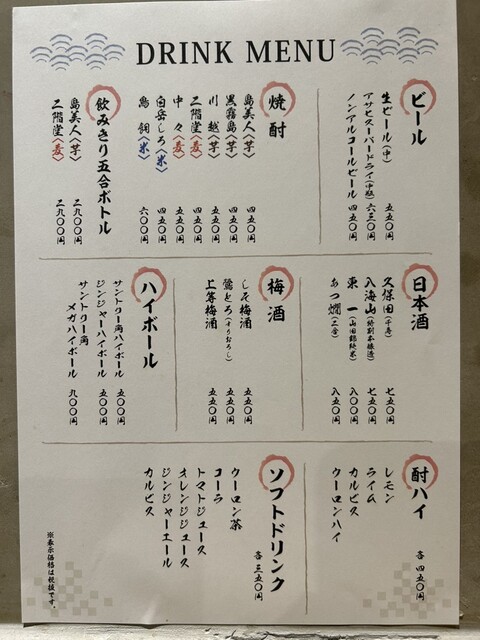 DRINK MENU
ビール
生ビール(中) 五五〇円
アサヒスーパードライ(中瓶) 六三〇円
ノンアルコールビール 四五〇円
焼酎
島美人〈芋〉 四五〇円
黒霧島〈芋〉 四五〇円
川越〈芋〉 五五〇円
二階堂〈麦〉 四五〇円
中々〈麦〉 五五〇円
白岳しろ〈米〉 四五〇円
鳥飼〈米〉 六〇〇円
飲みきり五合ボトル
島美人〈芋〉 二九〇〇円
二階堂〈麦〉 二九〇〇円
日本酒
久保田(千寿) 七五〇円
八海山(特別本醸造) 七五〇円
東一(山田錦純米) 八〇〇円
あつ燗(二合) 八五〇円
梅酒
しそ梅酒 五五〇円
鶯とろ(すりおろし) 五五〇円
上等梅酒 五五〇円
ハイボール
サントリー角ハイボール 五〇〇円
ジンジャーハイボール 五〇〇円
サントリー角メガハイボール 九〇〇円
酎ハイ
各 四五〇円
レモン
ライム
カルピス
ウーロンハイ
ソフトドリンク
各 三五〇円
ウーロン茶
コーラ
トマトジュース
オレンジジュース
ジンジャーエール
カルピス
※表示価格は税抜です。